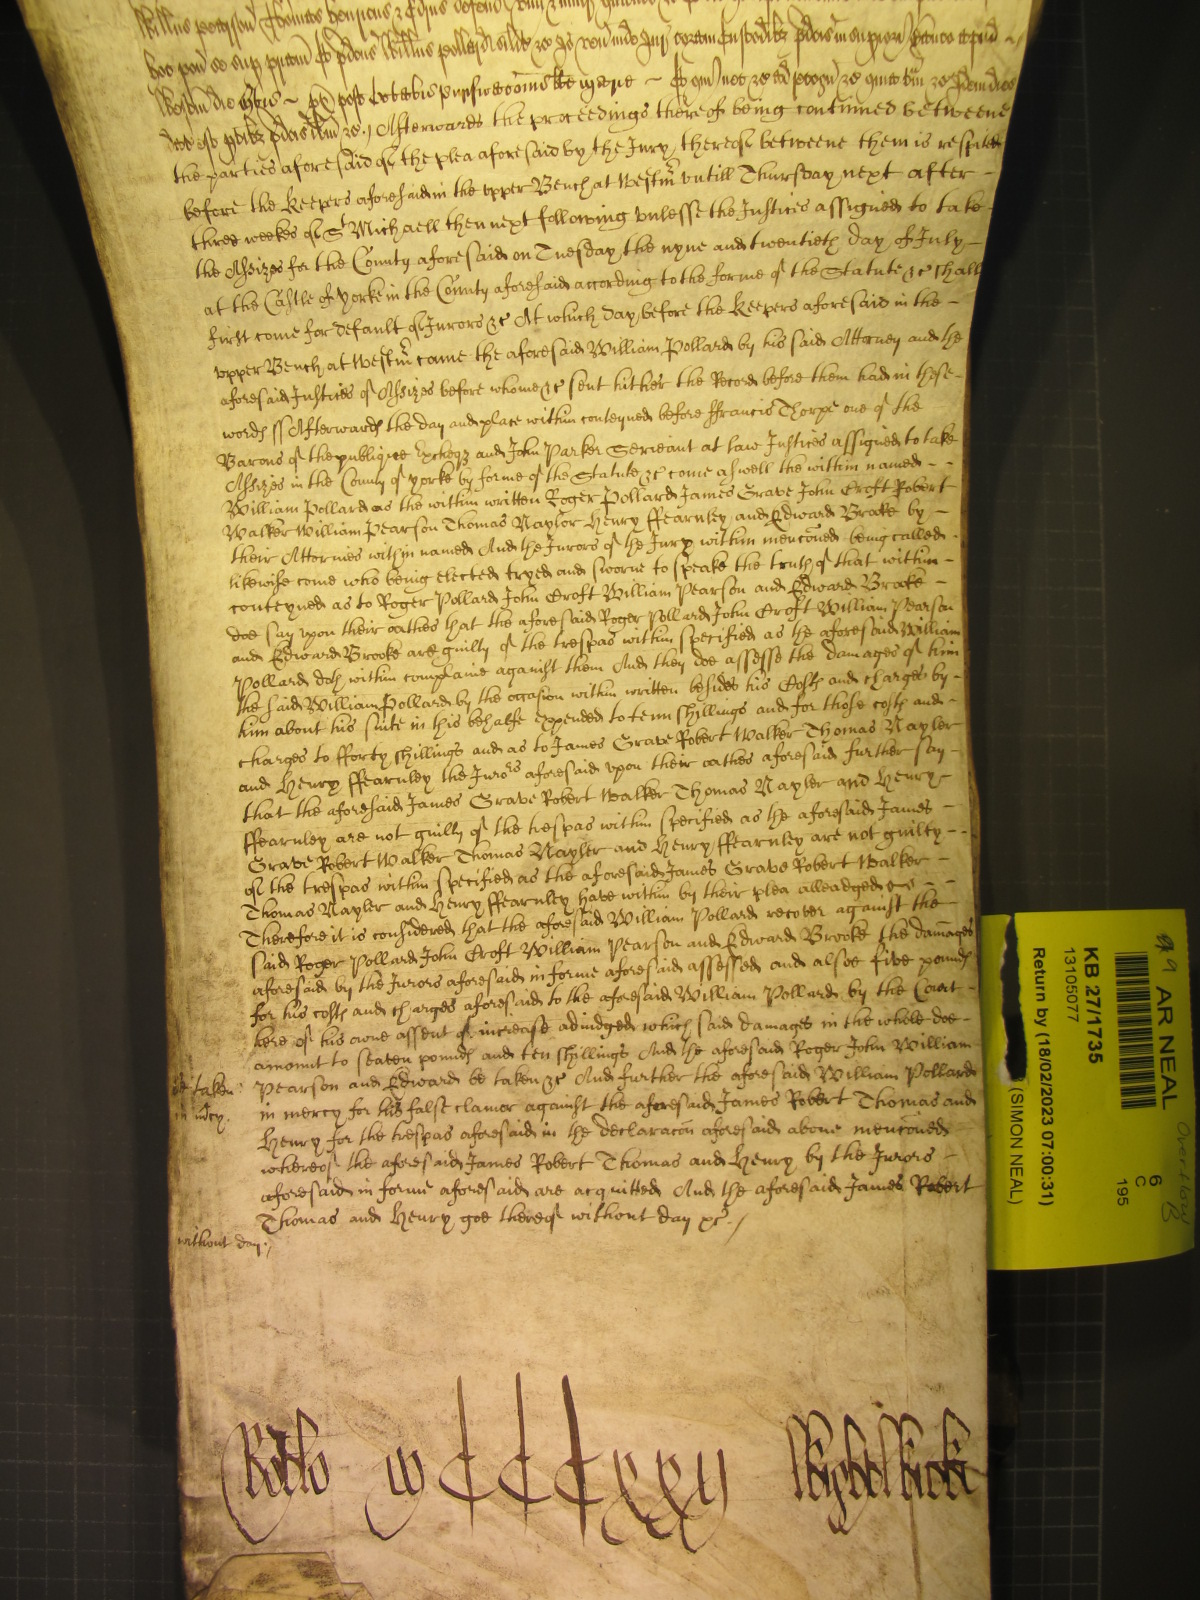 Afterwards the proceedings thereof being continued betweene
the parties aforesaid of the plea aforesaid by the Jury thereof betweene them is respited
before the Keepers aforesaid in the upper Bench at Westm̃ untill Thursday next after -
three weekes of St Michaell then next following unlesse the Justices assigned to take -
the Assizes for the County aforesaid on Tuesday the nyne and twentieth day of July -
at the Castle of Yorke in the County aforesaid according to the forme of the Statute &c shall
first come for default of Jurors &c At which day before the Keepers aforesaid in the -
upper Bench at Westm̃ came the aforesaid William Pollard by his said Attorney and the
aforesaid Justices of Assizes before whome &c sent hither the Record before them had in these -
words ss Afterwards the day and place within conteyned before ffrancis Thorpe one of the
Barons of the publique Excheqz and John Parker Serieant at law Justices assigned to take
Assizes in the County of Yorke by forme of the Statute &c come aswell the within named - -
William Pollard as the within written Roger Pollard James Grave John Croft Robert
Walker William Pearson Thomas Naylor Henry ffearnley and Edward Brooke by -
their Attornies within named And the Jurors of the Jury within menc̃oned being called -
likewise come who being elected tryed and sworne to speake the truth of that within -
conteyned as to Roger Pollard John Croft William Pearson and Edward Brooke -
doe say upon their oathes that the aforesaid Roger Pollard John Croft William Pearson
and Edward Brooke are guilty of the trespas within specified as the aforesaid William
Pollard doth within complaine against them And they doe assesse the damages of him
the said William Pollard by the occasion within written besides his Costs and charges by -
him about his suite in this behalfe expended to tenn shillings and for those costs and -
charges to fforty shillings and as to James Grave Robert Walker Thomas Nayler
and Henry ffearnley the Jurors aforesaid upon their oathes aforesaid further say -
that the aforesaid James Grave Robert Walker Thomas Nayler and Henry -
ffearnley are not guilty of the trespas within specified as the aforesaid James -
Grave Robert Walker Thomas Nayler and Henry ffearnley are not guilty - -
of the trespas within specified as the aforesaid James Grave Robert Walker -
Thomas Nayler and Henry ffearnley have within by their plea alleadged - -
Therefore it is considered that the aforesaid William Pollard recover against the -
said Roger Pollard John Croft William Pearson and Edward Brooke the damages
aforesaid by the Jurors aforesaid in forme aforesaid assessed and alsoe five pounds
for his costs and charges aforesaid to the aforesaid William Pollard by the Court -
here of his owne assent of increase adiudged which said damages in the whole doe -
amount to seaven pounds and ten shillings And the aforesaid Roger John William
be taken: Pearson and Edward be taken &c And further the aforesaid William Pollard
in m̃cy. in mercy for his false clamor against the aforesaid James Robert Thomas and
Henry for the trespas aforesaid in the declarac̃on aforesaid above menc̃oned -
whereof the aforesaid James Robert Thomas and Henry by the Jurors -
aforesaid in forme aforesaid are acquitted And the aforesaid James Robert
Thomas and Henry goe thereof without day &c./
without day./
Rotlo iiij CCCxxxij Wightwicke
AR NEAL
6
C
195
KB 27/1735
13105077
Return by (18/02/2023 07:00:31)
(SIMON NEAL)